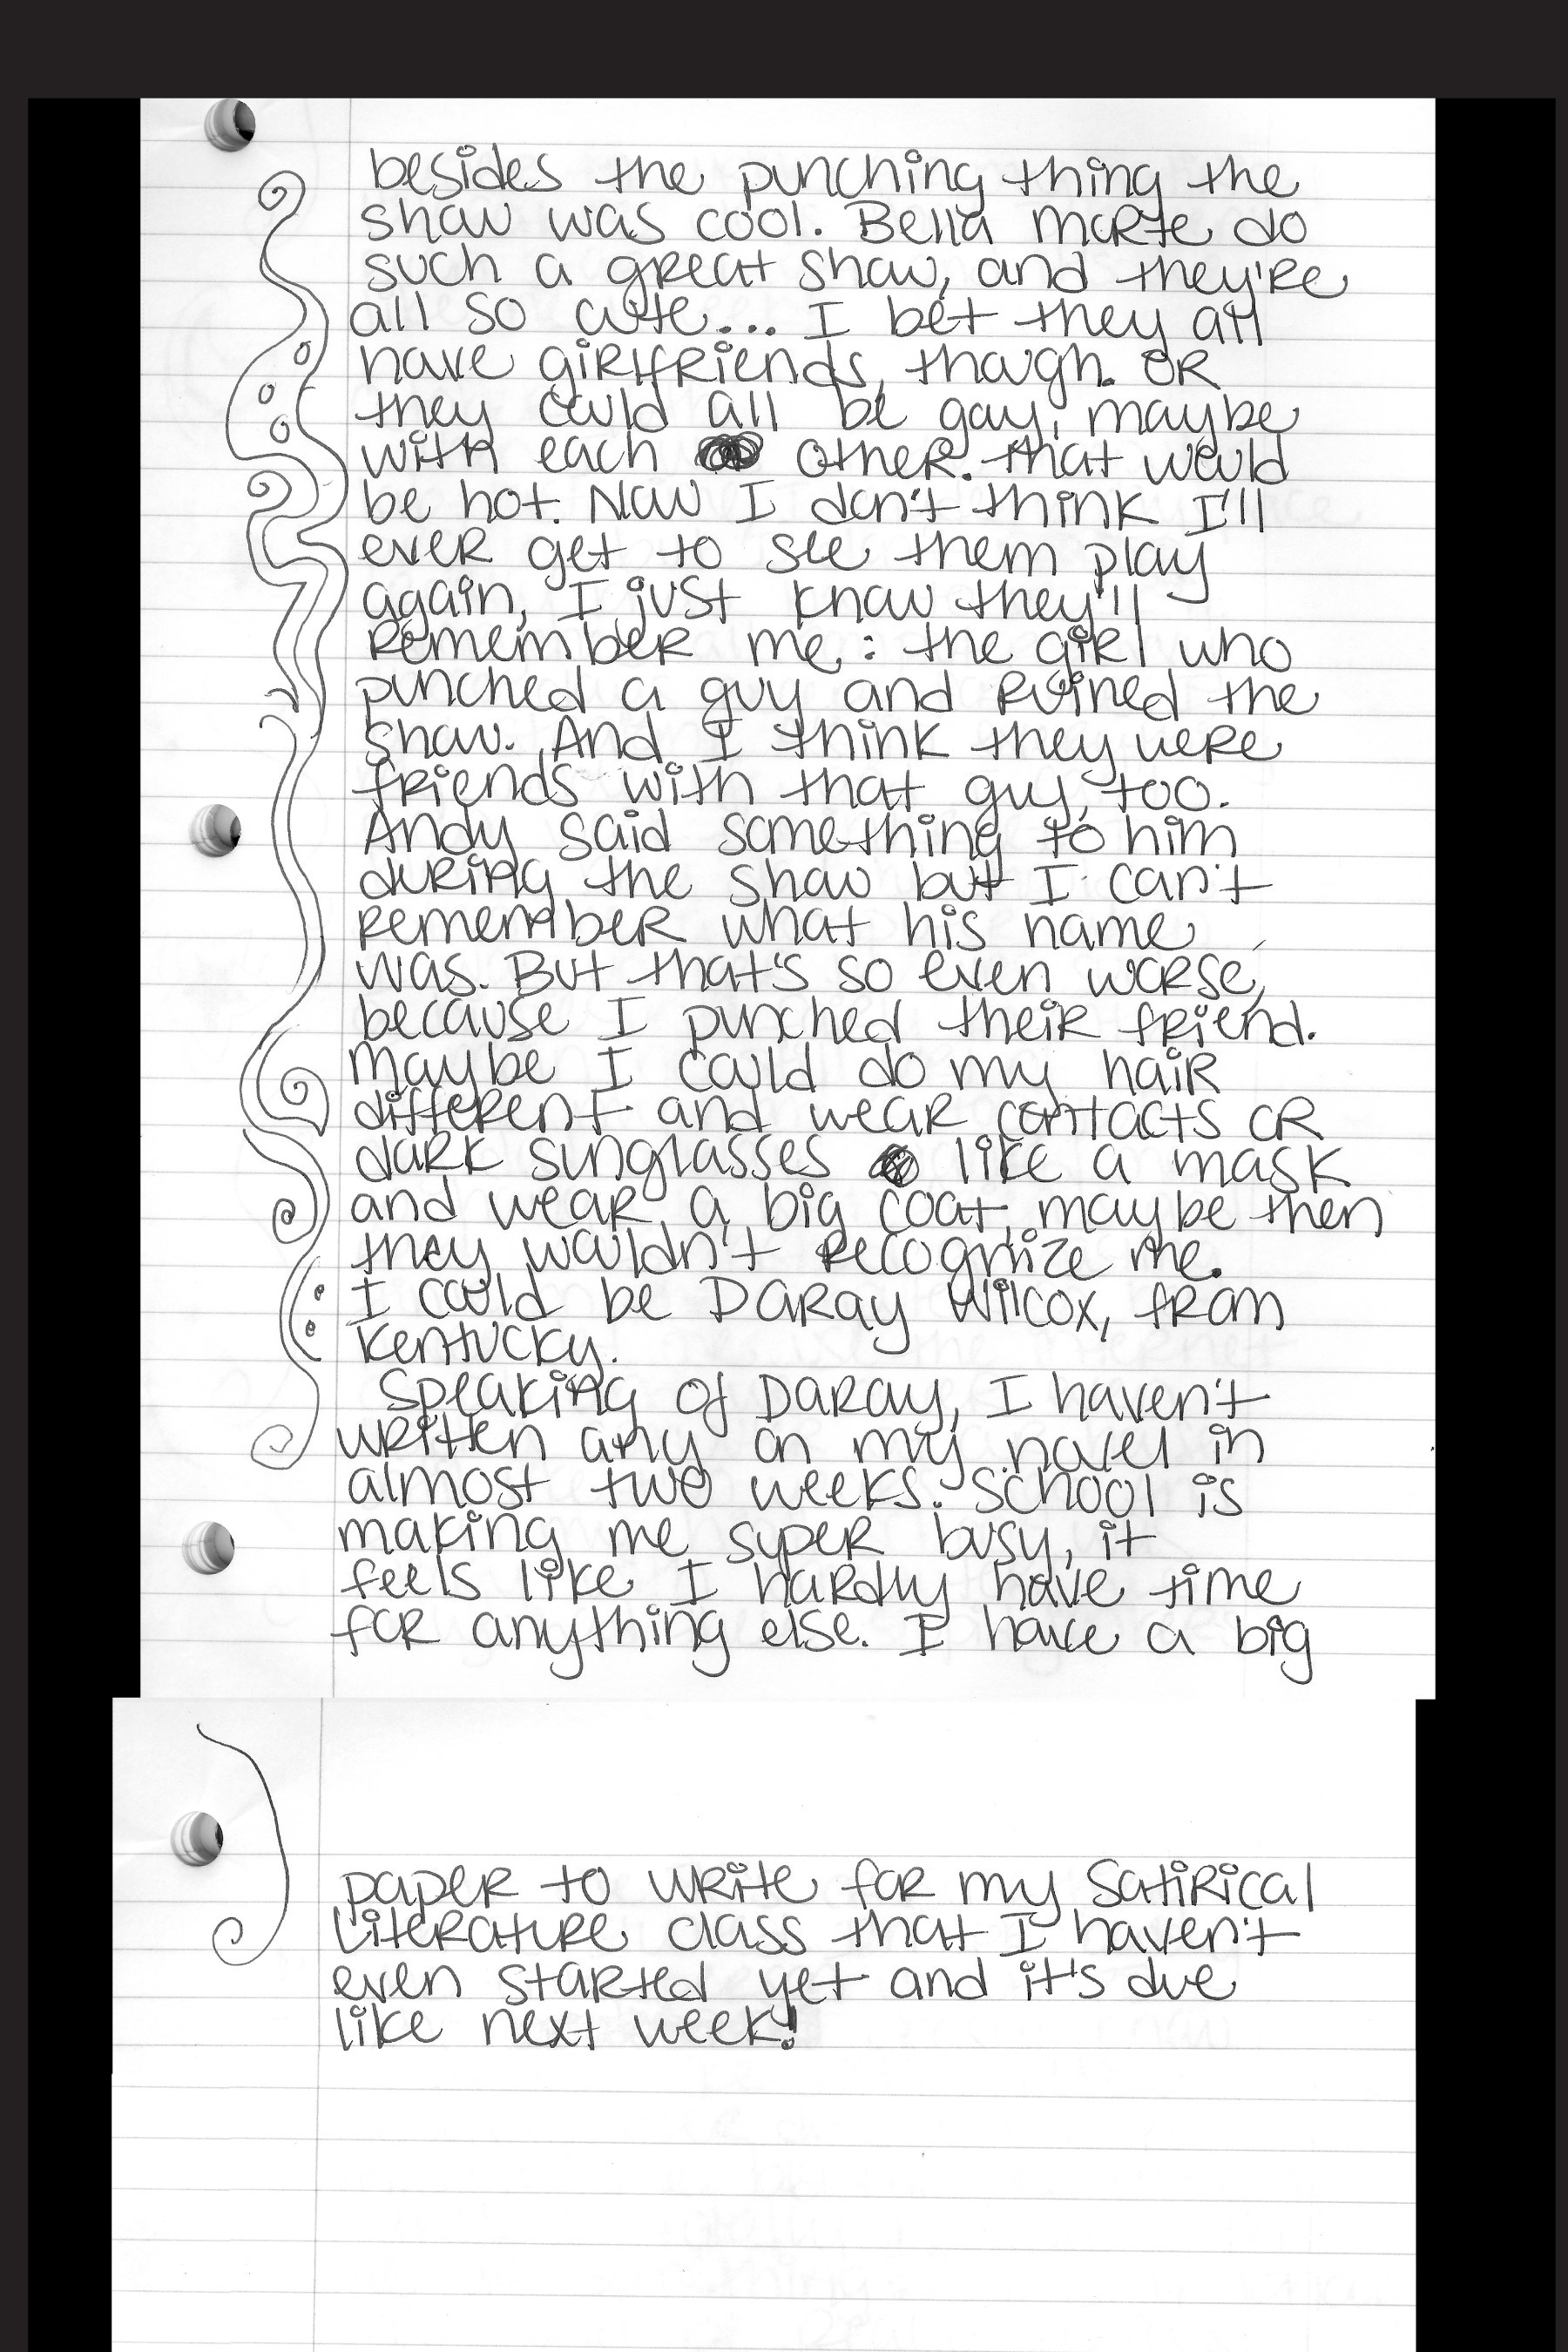 besides the punching thing the
show was cool. Bella Morte do
such a great show, and they're
all so cute... I bet they all
have girlfriends, though. Or
they could all be gay, maybe
with each other. that would
be hot. Now I don't think I'll
ever get to see them play
again, I just know they'll
remember me: the girl who
punched a guy and ruined the
show. And I think they were
friends with that guy, too.
Andy said something to him
during the show but I can't
remember what his name
was. But that's so even worse,
because I punched their friend.
Maybe I could do my hair
different and wear contacts or
dark sunglasses like a mask
and wear a big coat, maybe then
they wouldn't recognize me.
I could be Daray Wilcox, from
Kentucky.
Speaking of Daray, I haven't
written any on my novel in
almost two weeks. School is
making me super busy, it
feels like I hardly have time
for anything else. I have a big
paper to write for my Satirical
Literature class that I haven't
even started yet and it's due
like next week!